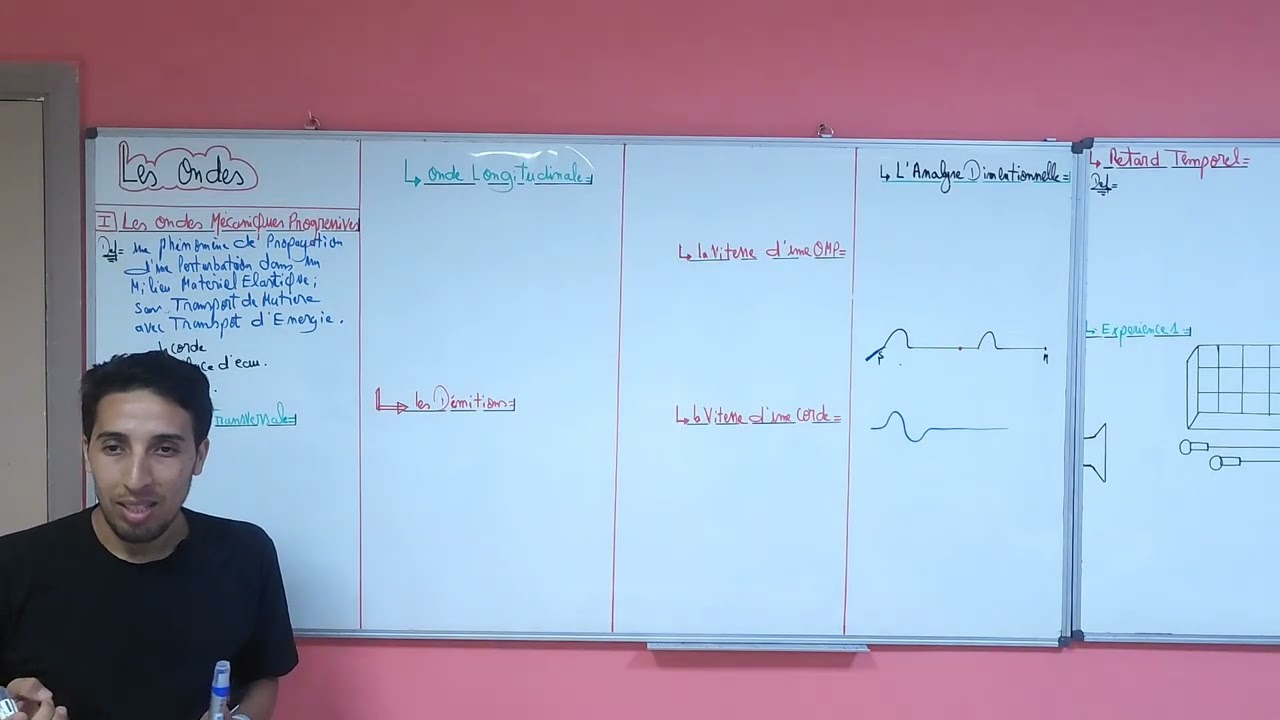 Les Ondes
I Les ondes Mécaniques Progressives
Def= une phénomène de Propagation
d'une Perturbation dans un
Milieu Materiel Elastique;
sans Transport de Matiere
avec Transpot d'Energie.
corde
d'eau.
Transversale=
Onde Longitudinale=
les Démitions=
la Vitesse d'une OMP=
la Vitesse d'une corde=
L'Analyse Dimentionnelle=
M
Retard Temporel=
Def=
Experience 1=